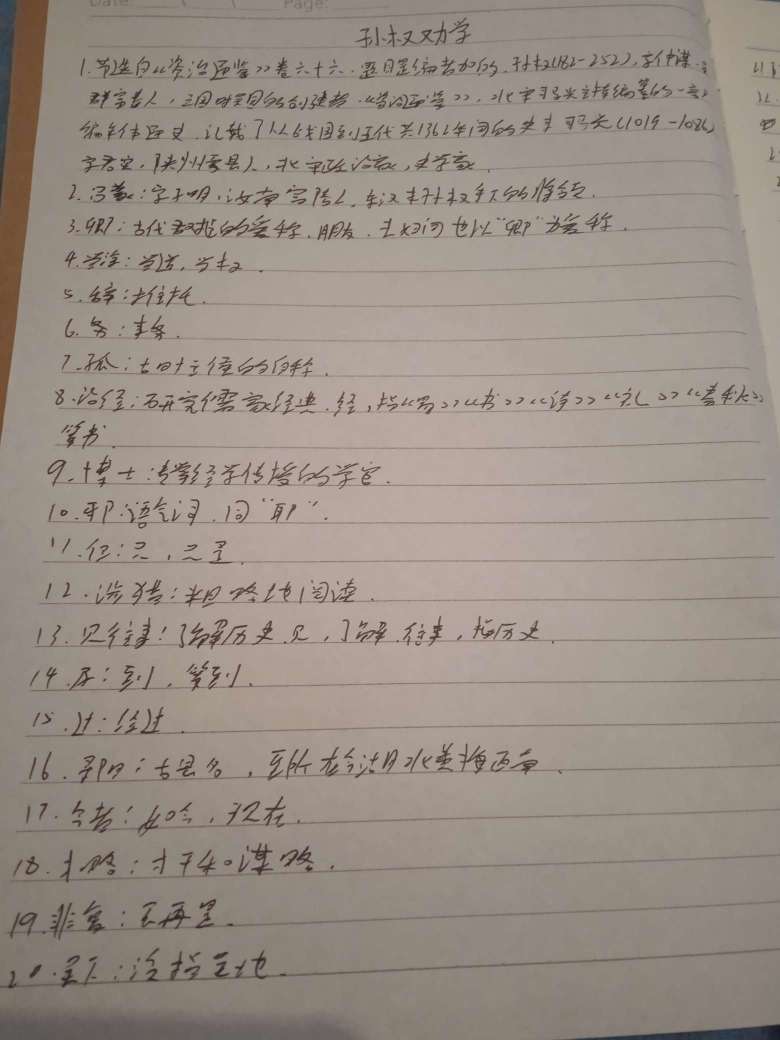 Date:
Page:
孙权劝学
1.节选自《资治通鉴》卷六十六.题目是编者加的.孙权(182-252),字仲谋.
郡富春人,三国时吴国的创建者.《资治通鉴》,北宋司马光主持编纂的一部
编年体通史.记载了从战国到五代共1362年间的史事.司马光(1019-1086)
字君实,陕州夏县人,北宋政治家,史学家.
2.吕蒙:字子明,汝南富陂人,东汉末孙权手下的将领.
3.卿:古代君对臣的爱称.朋友.夫妇间也以"卿"为爱称.
4.当涂:当道,当权.
5.辞:推托.
6.务:事务.
7.孤:古时王侯的自称.
8.治经:研究儒家经典.经,指《易》《书》《诗》《礼》《春秋》
等书.
9.博士:专掌经学传授的学官.
10.邪:语气词.同"耶".
11.但:只,只是.
12.涉猎:粗略地阅读.
13.见往事:了解历史.见,了解.往事,指历史.
14.及:到,等到.
15.过:经过.
16.寻阳:古县名,在今湖北黄梅西南.
17.今者:如今,现在.
18.才略:才干和谋略.
19.非复:不再是.
20.吴下:泛指吴地.